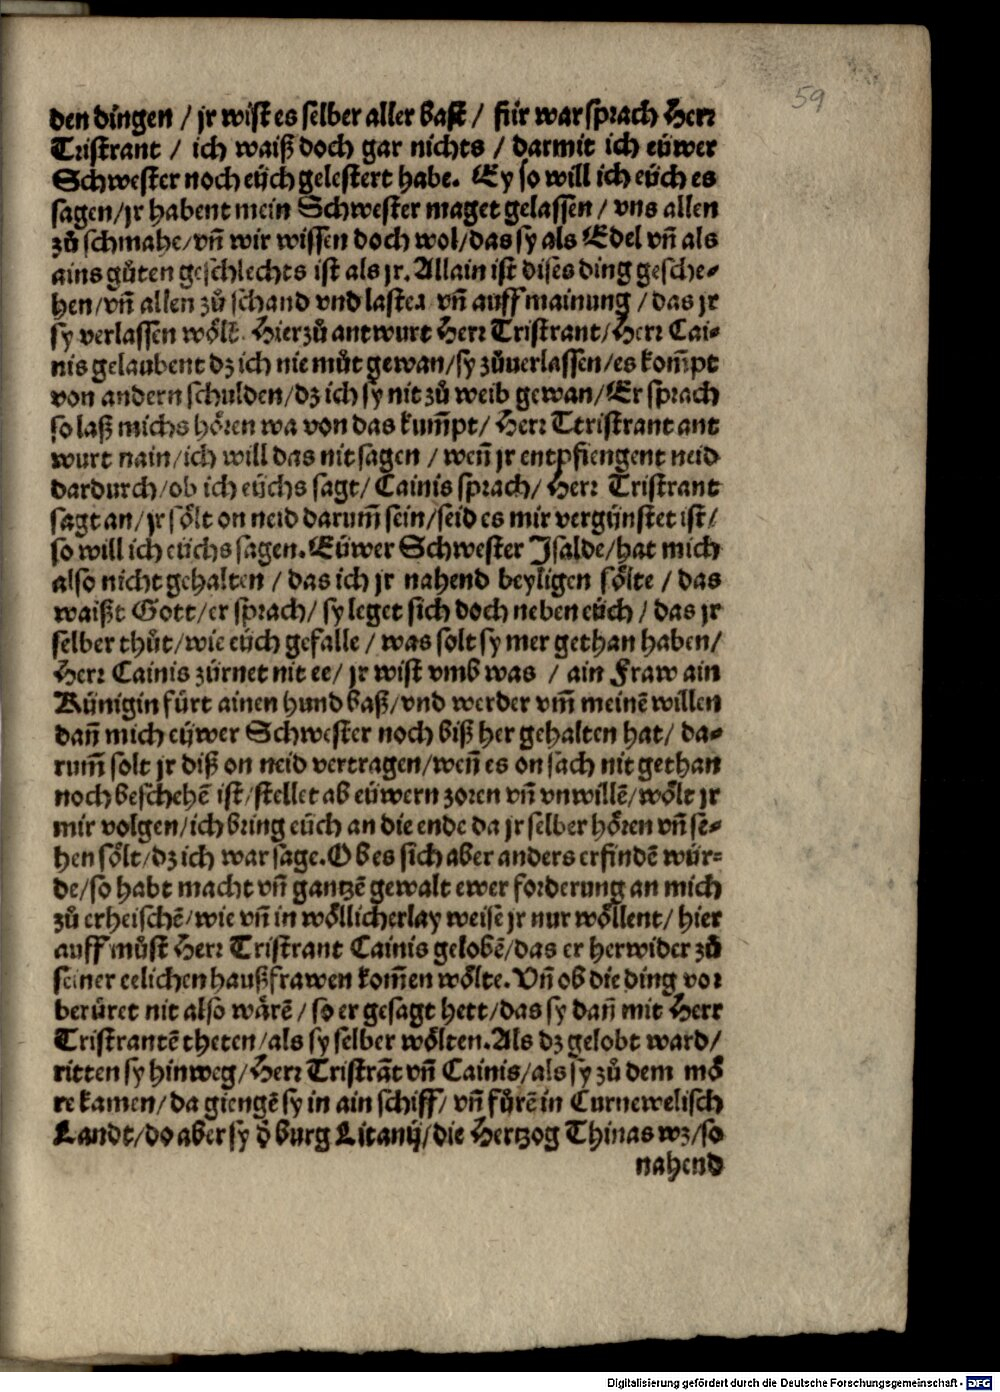 59
den dingen / jr wist es selber aller bast / für war sprach Herr
Tristrant / ich waiß doch gar nichts / darmit ich eüwer
Schwester noch eüch gelestert habe. Ey so will ich eüch es
sagen / jr habent mein Schwester maget gelassen / vns allen
zů schmahe / vñ wir wissen doch wol / das sy als Edel vñ als
ains gůten geschlechts ist als jr. Allain ist dises ding gesche⸗
hen / vñ allen zů schand vnd laster vñ auff mainung / das jr
sy verlassen wölt. Hierzů antwurt Herr Tristrant / Herr Cai⸗
nis gelaubent dz ich nie můt gewan / sy zůuerlassen / es kom̃pt
von andern schulden / dz ich sy nit zů weib gewan / Er sprach
so laß michs hören wa von das kum̃pt / Herr Ttristrant ant
wurt nain / ich will das nit sagen / weñ jr entpfiengent neid
dardurch / ob ich eüchs sagt / Cainis sprach / Herr Tristrant
sagt an / jr sölt on neid darum̃ sein / seid es mir vergünstet ist /
so will ich eüchs sagen. Eüwer Schwester Isalde / hat mich
also nicht gehalten / das ich jr nahend beyligen sölte / das
waißt Gott / er sprach / sy leget sich doch neben eüch / das jr
selber thůt / wie eüch gefalle / was solt sy mer gethan haben /
Herr Cainis zürnet nit ee / jr wist vmb was / ain Fraw ain
Künigin fürt ainen hund baß / vnd werder vm̃ meinē willen
dañ mich eüwer Schwester noch biß her gehalten hat / da⸗
rum̃ solt jr diß on neid vertragen / weñ es on sach nit gethan
noch beschehē ist / stellet ab eüwern zoren vñ vnwillē / wölt jr
mir volgen / ich bring eüch an die ende da jr selber hören vñ se⸗
hen sölt / dz ich war sage. Ob es sich aber anders erfindē wür⸗
de / so habt macht vñ gantzē gewalt ewer forderung an mich
zů erheischē / wie vñ in wöllicherlay weise jr nur wöllent / hier
auff můst Herr Tristrant Cainis gelobē / das er herwider zů
seiner eelichen haußfrawen kom̃en wölte. Vñ ob die ding vor
berüret nit also wärē / so er gesagt hett / das sy dañ mit Herr
Tristrantē theten / als sy selber wölten. Als dz gelobt ward /
ritten sy hinweg / Herr Tristrāt vñ Cainis / als sy zů dem mö
re kamen / da giengē sy in ain schiff / vñ fůrē in Curnewelisch
Landt / do aber sy d̕ burg Litanij / die Hertzog Thinas wz / so
nahend
Digitalisierung gefördert durch die Deutsche Forschungsgemeinschaft - DFG